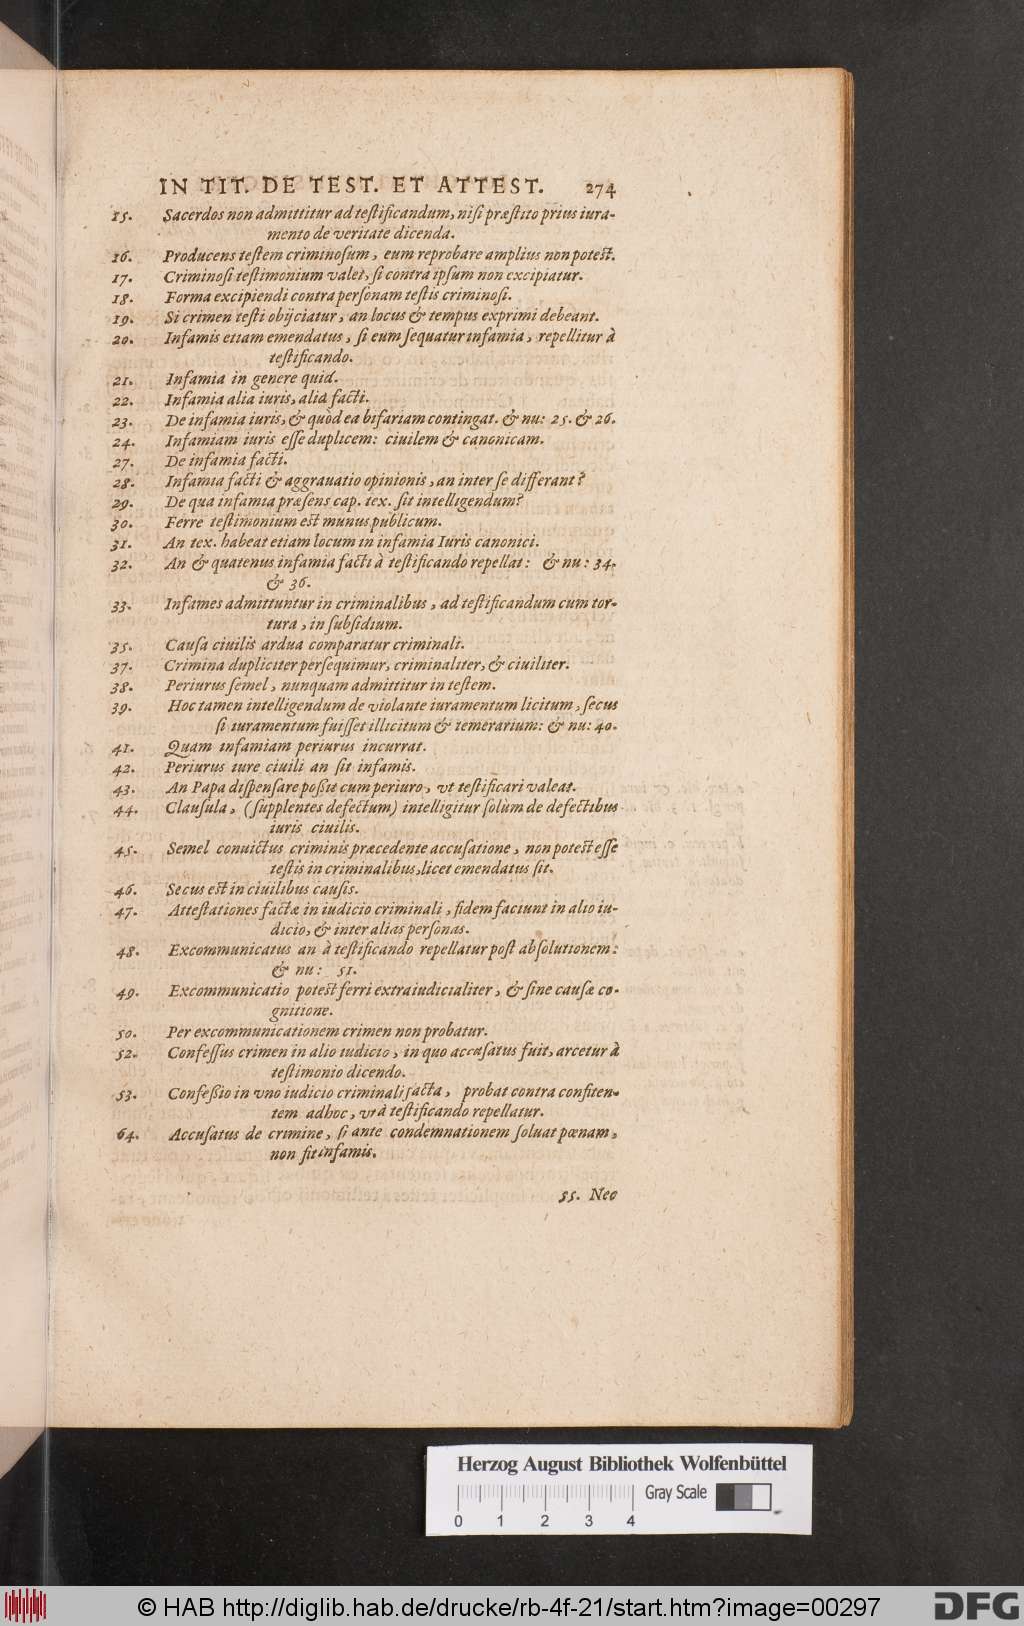 IN TIT. DE TEST. ET ATTEST. 274
15. Sacerdos non admittitur ad teſtificandum, niſi præſtito prius iura-
mento de veritate dicenda.
16. Producens teſtem criminoſum, eum reprobare amplius non poteſt.
17. Criminoſi teſtimonium valet, ſi contra ipſum non excipiatur.
18. Forma excipiendi contra perſonam teſtis criminoſi.
19. Si crimen teſti obijciatur, an locus & tempus exprimi debeant.
20. Infamis etiam emendatus, ſi eum ſequatur infamia, repellitur à
teſtificando.
21. Infamia in genere quid.
22. Infamia alia iuris, alia facti.
23. De infamia iuris, & quòd ea bifariam contingat. & nu: 25. & 26.
24. Infamiam iuris eſſe duplicem: ciuilem & canonicam.
27. De infamia facti.
28. Infamia facti & aggrauatio opinionis, an inter ſe differant?
29. De qua infamia præſens cap. tex. ſit intelligendum?
30. Ferre teſtimonium eſt munus publicum.
31. An tex. habeat etiam locum in infamia Iuris canonici.
32. An & quatenus infamia facti à teſtificando repellat: & nu: 34.
& 36.
33. Infames admittuntur in criminalibus, ad teſtificandum cum tor-
tura, in ſubſidium.
35. Cauſa ciuilis ardua comparatur criminali.
37. Crimina dupliciter perſequimur, criminaliter, & ciuiliter.
38. Periurus ſemel, nunquam admittitur in teſtem.
39. Hoc tamen intelligendum de violante iuramentum licitum, ſecus
ſi iuramentum fuiſſet illicitum & temerarium: & nu: 40.
41. Quam infamiam periurus incurrat.
42. Periurus iure ciuili an ſit infamis.
43. An Papa diſpenſare poßit cum periuro, vt teſtificari valeat.
44. Clauſula, (ſupplentes defectum) intelligitur ſolùm de defectibus
iuris ciuilis.
45. Semel conuictus criminis præcedente accuſatione, non poteſt eſſe
teſtis in criminalibus, licet emendatus ſit.
46. Secus eſt in ciuilibus cauſis.
47. Atteſtationes factæ in iudicio criminali, fidem faciunt in alio iu-
dicio, & inter alias perſonas.
48. Excommunicatus an à teſtificando repellatur poſt abſolutionem:
& nu: 51.
49. Excommunicatio poteſt ferri extraiudicialiter, & ſine cauſæ co-
gnitione.
50. Per excommunicationem crimen non probatur.
52. Confeſſus crimen in alio iudicio, in quo accuſatus fuit, arcetur à
teſtimonio dicendo.
53. Confeßio in vno iudicio criminali facta, probat contra confiten-
tem adhoc, vt à teſtificando repellatur.
64. Accuſatus de crimine, ſi ante condemnationem ſoluat pœnam,
non ſit infamis.
55. Nec
Herzog August Bibliothek Wolfenbüttel
Gray Scale
0 1 2 3 4
© HAB http://diglib.hab.de/drucke/rb-4f-21/start.htm?image=00297
DFG